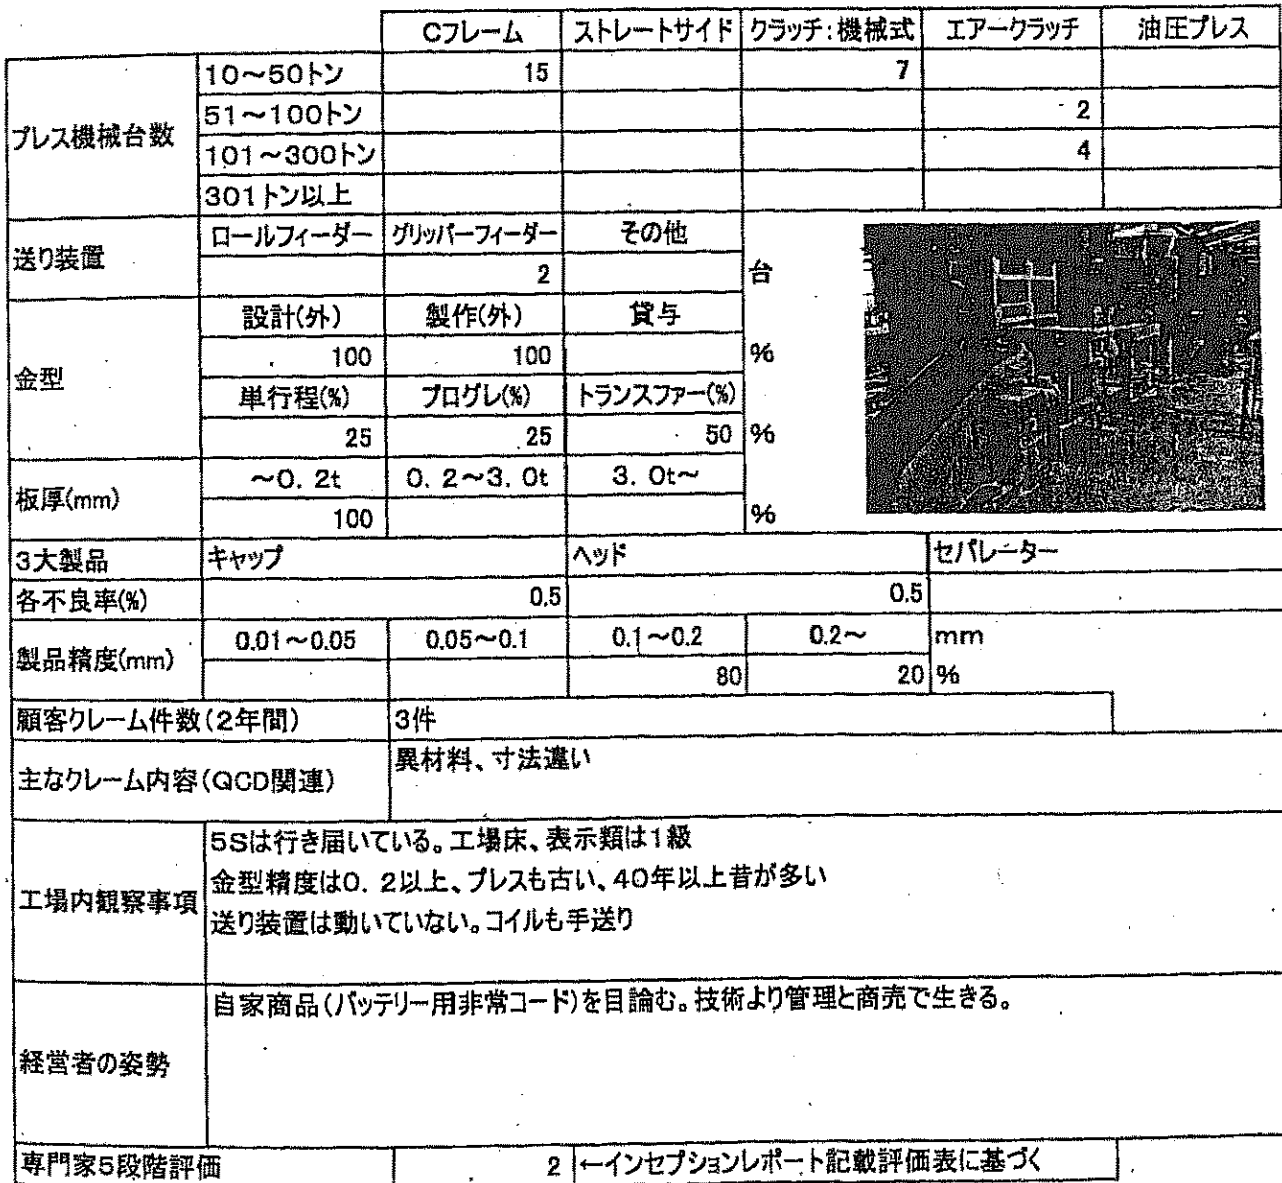 Cフレーム ストレートサイド クラッチ:機械式 エアークラッチ 油圧プレス
プレス機械台数
10～50トン 15 7
51～100トン 2
101～300トン 4
301トン以上
送り装置
ロールフィーダー グリッパーフィーダー その他
2 台
金型
設計(外) 製作(外) 貸与
100 100 %
単行程(%) プログレ(%) トランスファー(%)
25 25 50 %
板厚(mm)
～0. 2t 0. 2～3. 0t 3. 0t～
100 %
3大製品 キャップ ヘッド セパレーター
各不良率(%) 0.5 0.5
製品精度(mm)
0.01～0.05 0.05～0.1 0.1～0.2 0.2～ mm
80 20 %
顧客クレーム件数(2年間) 3件
主なクレーム内容(QCD関連) 異材料、寸法違い
工場内観察事項
5Sは行き届いている。工場床、表示類は1級
金型精度は0. 2以上、プレスも古い、40年以上昔が多い
送り装置は動いていない。コイルも手送り
経営者の姿勢
自家商品(バッテリー用非常コード)を目論む。技術より管理と商売で生きる。
専門家5段階評価 2 ←インセプションレポート記載評価表に基づく